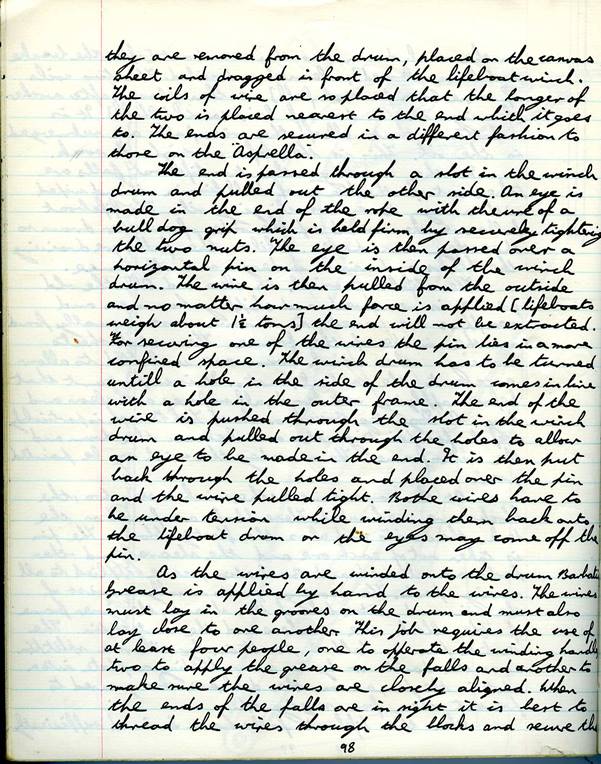 they are removed from the drum, placed on the canvas
sheet and dragged is front of the lifeboat winch.
The coils of wire are so placed that the longer of
the two is placed nearest to the end which it goes
to. The ends are secured in a different fashion to
those on the "Asprella".
The end is passed through a slot in the winch
drum and pulled out the other side. An eye is
made in the end of the rope with the use of a
bull dog grip which is held firm by securely tightening
the two nuts. The eye is then passed over a
horizontal pin on the inside of the winch
drum. The wire is then pulled from the outside
and no matter how much force is applied [lifeboats
weigh about 1½ tons] the end will not be extracted.
For securing one of the wires the pin lies in a more
confined space. The winch drum has to be turned
untill a hole in the side of the drum comes in line
with a hole in the outer frame. The end of the
wire is pushed through the slot in the winch
drum and pulled out through the holes to allow
an eye to be made in the end. It is then put
back through the holes and placed over the pin
and the wire pulled tight. Bothe wires have to
be under tension while winding them back onto
the lifeboat drum or the eyes may come off the
pin.
As the wires are winded onto the drum
Grease is applied by hand to the wires. The wires
must lay in the grooves on the drum and must also
lay close to one another. This job requires the use of
at least four people, one to opperate the winding handle
two to apply the grease on the falls and another to
make sure the wires are closely aligned. When
the ends of the falls are in sight it is best to
thread the wires through the blocks and secure the
98